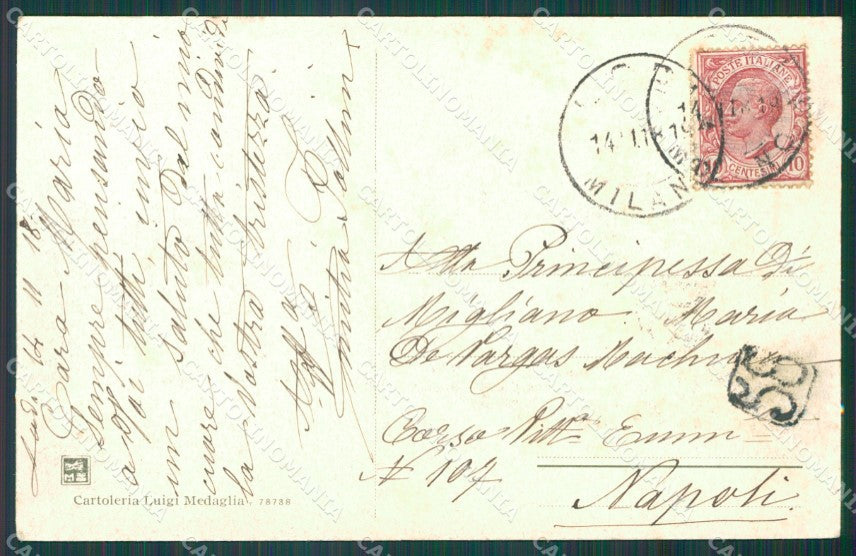 Lodi 14 11 18
Cara Maria
sempre pensando
a voi tutti, invio
un saluto dal mio
cuore che tutta condivide
la vostra tristezza.
Aff a
Alla Principessa Di
Migliano Maria
De Vargas Machuca
Corso Vitt.º Emm =
N 107
Napoli.
POSTE ITALIANE
10 CENTESIMI 10
LODI
14 11 18 19
MILANO
Cartoleria Luigi Medaglia, 78738
CARTOLINOMANIA